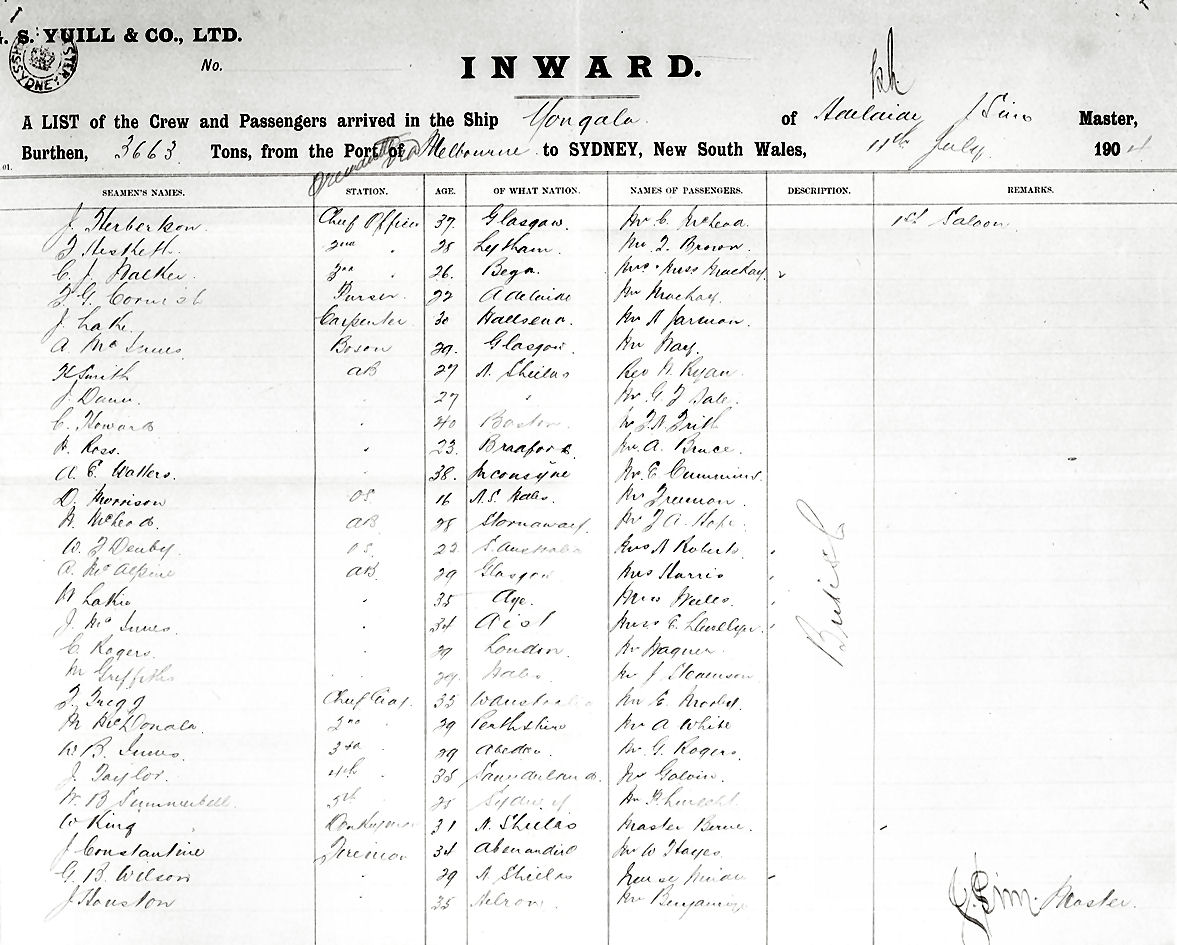 S. YUILL & CO., LTD.
SYDNEY
No.
INWARD.
A LIST of the Crew and Passengers arrived in the Ship Yongala of Adelaide J Sim Master,
Burthen, 3663 Tons, from the Port of Melbourne to SYDNEY, New South Wales, 11th July 1904
SEAMEN'S NAMES. STATION. AGE. OF WHAT NATION. NAMES OF PASSENGERS. DESCRIPTION. REMARKS.
J. Herbertson. Chief Officer 37. Glasgow. Mr C. McLeod. 1st Saloon.
2nd " 28 Lytham. Mr T. Brown.
C. J. Walker. 3rd " 26. Bega. Mrs & Miss Mackay.
F. G. Cornish Purser. 22 Adelaide Mr Mackay.
J. Lake. Carpenter 30 Mr A Jarman.
A. McInnes Boson 29. Glasgow. Mr Way.
H Smith AB 27 N. Shields Rev W Ryan.
J Dann. " 27 " Mr G F Sale.
C. Howard " 40 Boston Mr F A Frith
H. Ross. " 23. Bradford. Mr A. Bruce.
A. E. Walters. " 38. Mr E Cummins.
D. Morrison OS 16 N.S. Wales. Mr Freeman
McLeod. AB 28 Stornaway. Mr F A. Hope.
W. F Denby. OS 22 S. Australia Mrs A Roberts.
A. McAlpine AB 29 Glasgow Mrs Harris
" 35 Miss Wells.
J. McInnes. " 34 Miss E. Llewellyn.
C. Rogers. " 29 London. Mr Wagner.
M Griffiths " 29. Wales. Mr J
F. Gregg Chief 35 W Australia Mr E.
M McDonald. 2nd " 29 Perthshire Mr A White
W B. Innes. 3rd " 29 Aberdeen. Mr G. Rogers.
J. Taylor. 4th " 35 Saunderland. Mr Galvin.
W. B Summerbell. 5th " 25 Sydney Mr
W King Donkeyman 31 N. Shields Master Berne.
J Constantine Fireman 34 Mr W Hayes.
G. B. Wilson " 29 N Shields Nurse
J Houston " 35 Mr Benjamin
British
J Sim. Master.